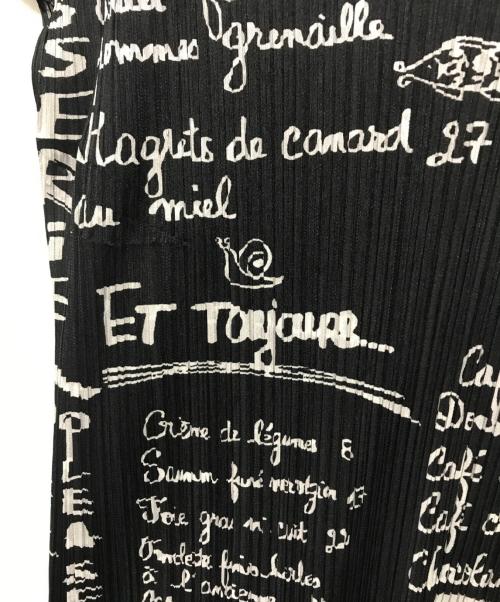 pommes grenaille
Magrets de canard 27
au miel
ET Toujours...
Crème de légumes 8
Saumon fumé norvégien 17
Foie gras mi cuit 22
Omelette fines herbes
à l'ancienne
Café
Café
Café
Chocolat
PLEASE